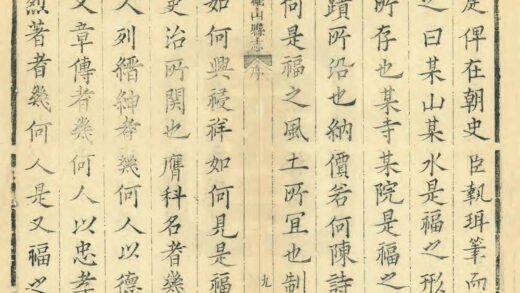 廷俾在朝史臣執珥筆而
之曰某山某水是福之形
所存也某寺某院是福之
蹟所沿也納價若何陳詩
何是福之風土所宜也制
福山縣志 序 九
如何興祲祥如何見是福
吏治所關也膺科名者幾
人列縉紳者幾何人以德
文章傳者幾何人以忠孝
烈著者幾何人是又福之